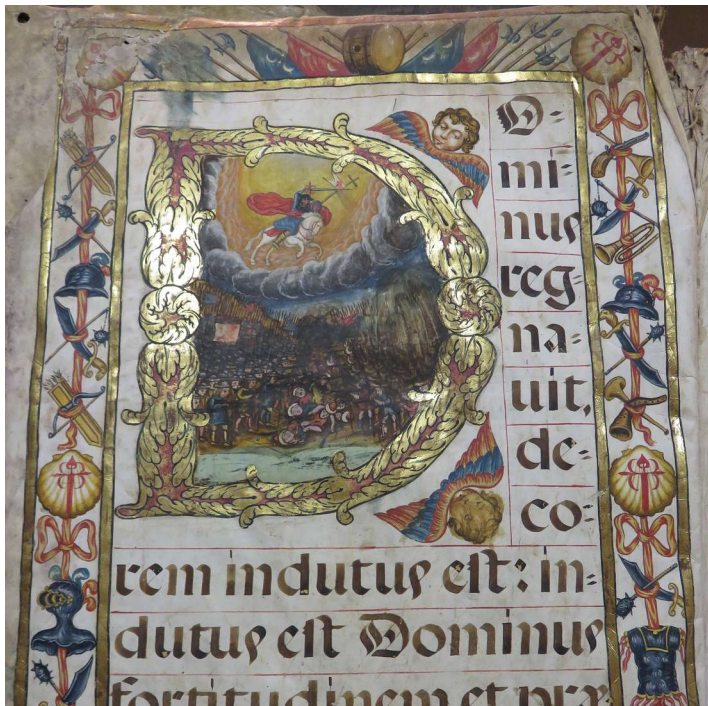 DO-
mi-
nus
reg-
na-
uit,
de-
co-
rem indutus est: in-
dutus est Dominus
fortitudinem et præ